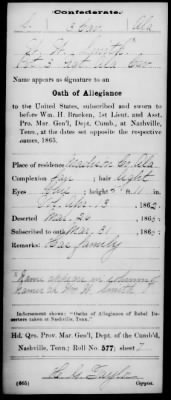 Confederate.
S. 3 Cav. Ala
W. H. Smith
Pvt 3 regt Ala Cav
Name appears as signature to an
Oath of Allegiance
to the United States, subscribed and sworn to
before Wm. H. Bracken, 1st Lieut. and Asst.
Pro. Mar. Gen'l, Dept. Cumb., at Nashville,
Tenn., at the dates set opposite the respective
names, 1865.
Place of residence Madison Co Ala
Complexion Fair hair light
Eyes height 5 11 in.
13, 1862.
Deserted Mar. 26, 1865.
Subscribed to oath Mar. 31, 1865.
Remarks: Has family
"Name appears in column of
names as Wm H. Smith"
Indorsement shows: "Oaths of Allegiance of Rebel De-
serters taken at Nashville, Tenn."
Hd. Qrs. Prov. Mar. Gen'l, Dept. of the Cumb'd,
Nashville, Tenn.; Roll No. 577; sheet 7
Taylor
(665) Copyist.